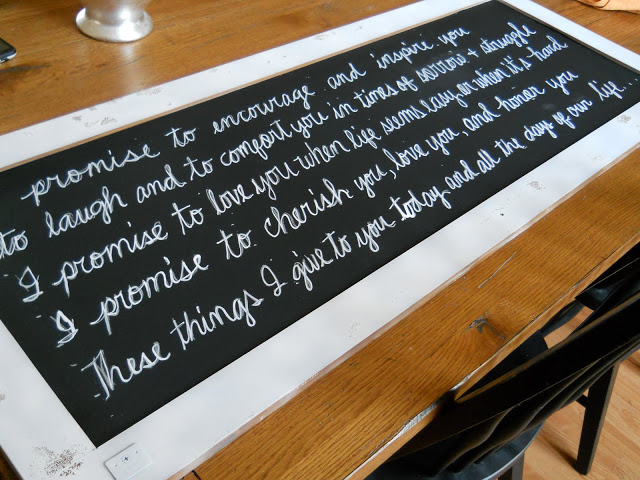 promise to encourage and inspire you
to laugh and to comfort you in times of sorrow + struggle
I promise to love you when life seems easy or when it's hard
I promise to cherish you, love you and honor you
These things I give to you today and all the day of our life...